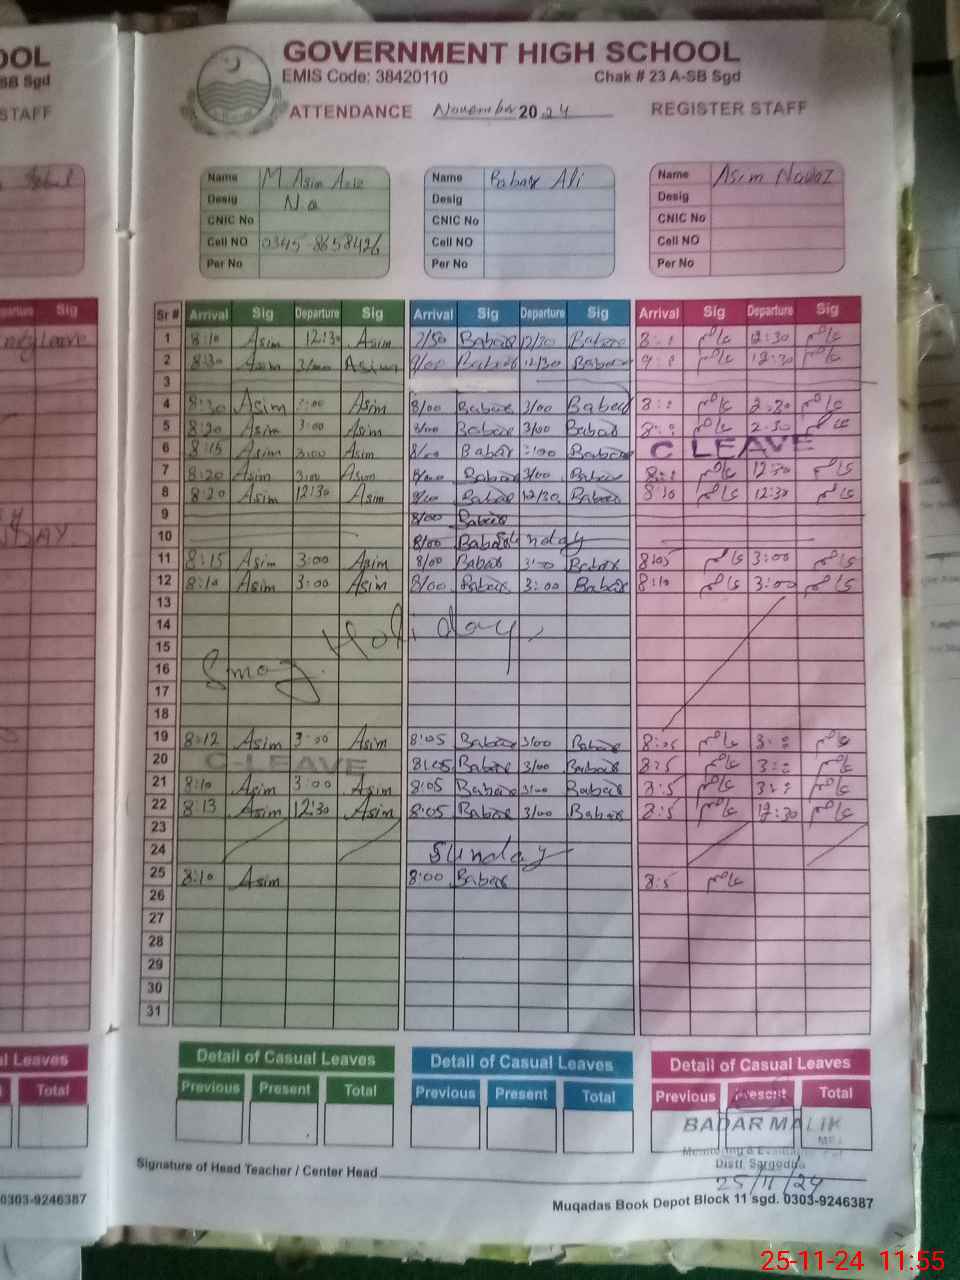 OOL
SB Sgd
STAFF
GOVERNMENT HIGH SCHOOL
EMIS Code: 38420110 Chak # 23 A-SB Sgd
ATTENDANCE November 2024 REGISTER STAFF
Name M Asim Aziz Name Babar Ali Name Asim Nawaz
Desig Na Desig Desig
CNIC No CNIC No CNIC No
Cell NO 0345-8658426 Cell NO Cell NO
Per No Per No Per No
Sig
Sr # Arrival Sig Departure Sig Arrival Sig Departure Sig Arrival Sig Departure Sig
1 8:10 Asim 12:30 Asim 7/50 Babar 12/30 Babar عاصم 12:30 عاصم
2 8:30 Asim Asim 9/00 Babar 12/30 Babar عاصم 12:30 عاصم
3
4 8:30 Asim Asim 8/00 Babar 3/00 Babar عاصم 2:30 عاصم
5 8:20 Asim 3:00 Asim 8/00 Babar 3/00 Babar عاصم 2:30 عاصم
6 8:15 Asim 3:00 Asim 8/00 Babar Babar C LEAVE
7 8:20 Asim 3:00 Asim Babar 3/00 Babar عاصم 12:30 عاصم
8 8:20 Asim 12:30 Asim Babar 12/30 Babar 8:10 عاصم 12:30 عاصم
9 8/00 Babar
10 8/00 Babar Sunday
11 8:15 Asim 3:00 Asim 8/00 Babar Babar 8:05 عاصم 3:00 عاصم
12 8:10 Asim 3:00 Asim 8/00 Babar 3:00 Babar 8:10 عاصم 3:00 عاصم
13
14
15
16 Smog Holiday
17
18
19 8:12 Asim 3:00 Asim 8:05 Babar 3/00 Babar 8:05 عاصم عاصم
20 C-LEAVE 8:05 Babar 3/00 Babar 8:5 عاصم عاصم
21 8:10 Asim 3:00 Asim 8:05 Babar 3/00 Babar عاصم عاصم
22 8:13 Asim 12:30 Asim 8:05 Babar 3/00 Babar 8:5 عاصم 12:30 عاصم
23
24 Sunday
25 8:10 Asim 8:00 Babar 8:5 عاصم
26
27
28
29
30
31
Leaves
Total
Detail of Casual Leaves Detail of Casual Leaves Detail of Casual Leaves
Previous Present Total Previous Present Total Previous Present Total
BADAR MALIK
Distt. Sargodha
25/11/24
Signature of Head Teacher / Center Head
0303-9246387
Muqadas Book Depot Block 11 sgd. 0303-9246387
25-11-24 11:55